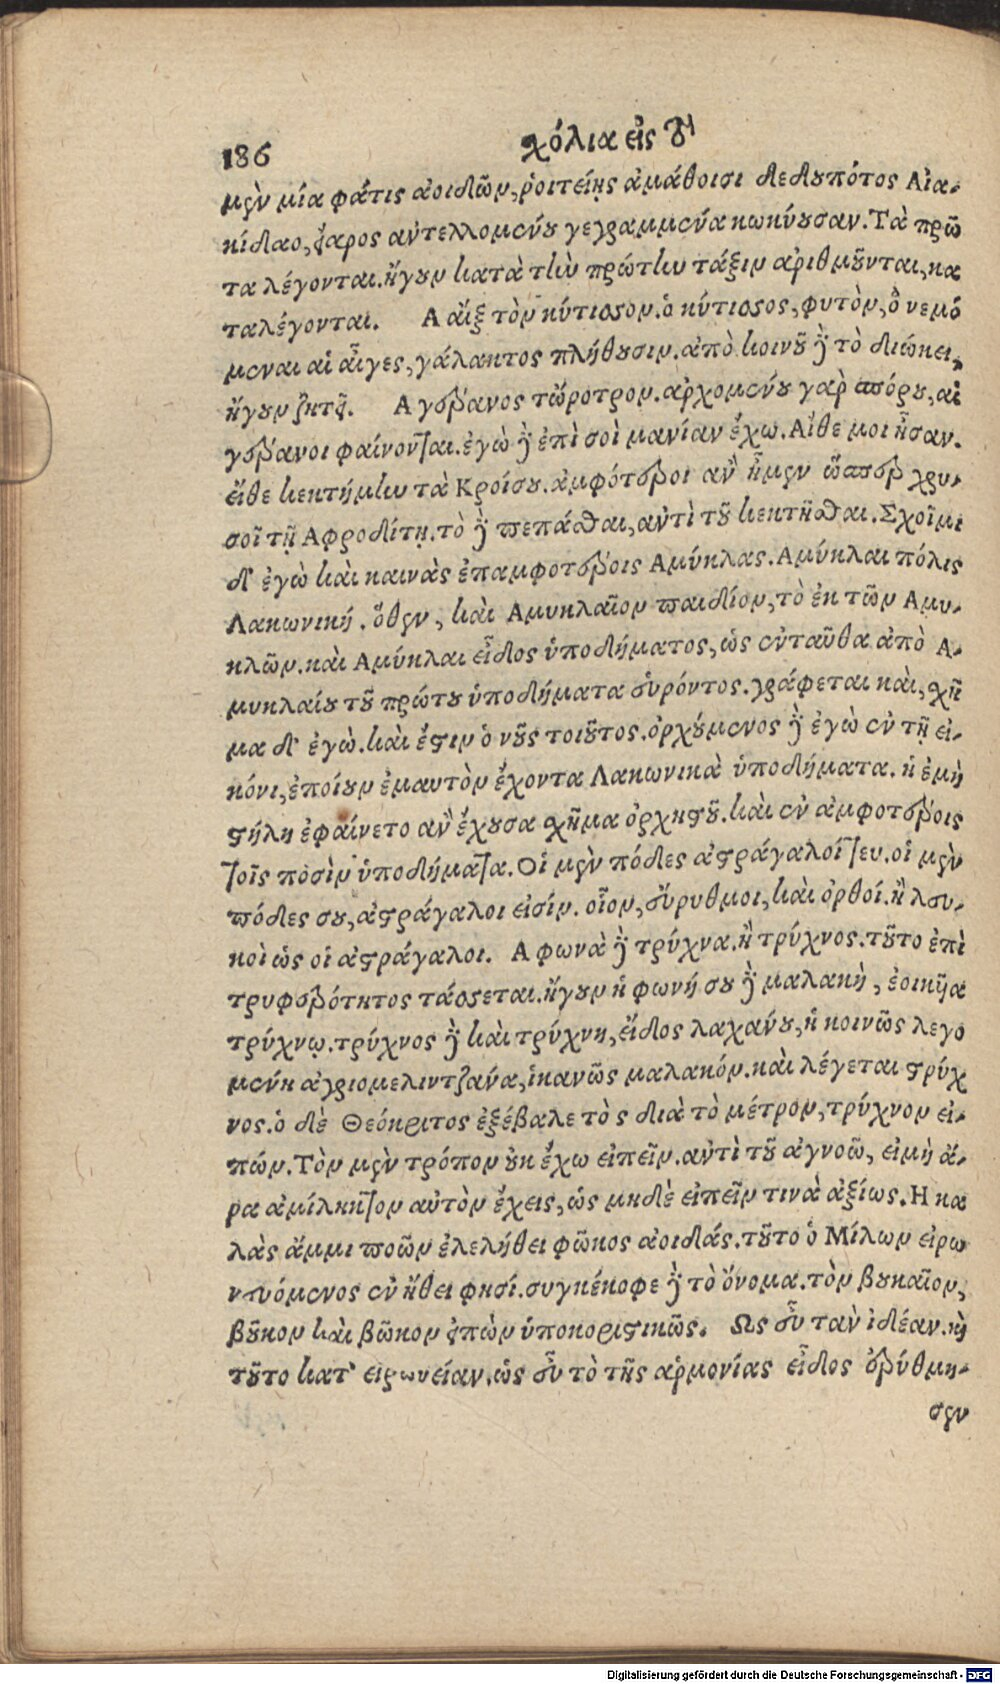 186
σχόλια εἰς τὸ
μὲν μία φάτις ἀοιδῶν, ῥοιτείης ἀμάθοισι δεδουπότος Αἰα-
κίδαο, ἔαρος ἀντελλομένου γεγραμμένα κωκύουσαν. Τὰ πρᾶ
τα λέγονται. ἤγουν κατὰ τὴν πρώτην τάξιν ἀριθμοῦνται, κα
ταλέγονται. Α αἲξ τὸν κύτισσον. ὁ κύτισσος, φυτὸν, ὃ νεμό
μεναι αἱ αἶγες, γάλακτος πλήθουσιν. ἀπὸ κοινοῦ δὲ τὸ διώκει,
ἤγουν ζητεῖ. Α γέρανος τὤροτρον. ἀρχομένου γὰρ σπόρου, αἱ
γέρανοι φαίνονται. ἐγὼ δὲ ἐπὶ σοὶ μανίαν ἔχω. Αἴθε μοι ἦσαν.
εἴθε κεκτήμην τὰ Κροίσου. ἀμφότεροι ἂν ἦμεν ὥσπερ χρυ-
σοῖ τῇ Αφροδίτῃ. τὸ δὲ πεπάσθαι, ἀντὶ τοῦ κεκτῆσθαι. Σχοῖμι
δ' ἐγὼ καὶ καινὰς ἐπαμφοτέροις Αμύκλας. Αμύκλαι πόλις
Λακωνική. ὅθεν, καὶ Αμυκλαῖον παιδίον, τὸ ἐκ τῶν Αμυ-
κλῶν. καὶ Αμύκλαι εἶδος ὑποδήματος, ὡς ἐνταῦθα ἀπὸ Α-
μυκλαίου τοῦ πρώτου ὑποδήματα εὑρόντος. γράφεται καὶ, σχῆ
μα δ' ἐγὼ. καὶ ἔστιν ὁ νοῦς τοιοῦτος. ὀρχούμενος δὲ ἐγὼ ἐν τῇ εἰ-
κόνι, ἐποίουν ἐμαυτὸν ἔχοντα Λακωνικὰ ὑποδήματα. ἡ ἐμὴ
στήλη ἐφαίνετο ἂν ἔχουσα σχῆμα ὀρχηστοῦ. καὶ ἐν ἀμφοτέροις
τοῖς ποσὶν ὑποδήματα. Οἱ μὲν πόδες ἀστράγαλοί τευ. οἱ μὲν
πόδες σου, ἀστράγαλοι εἰσίν. οἷον, εὔρυθμοι, καὶ ὀρθοί. ἢ λευ-
κοὶ ὡς οἱ ἀστράγαλοι. Α φωνὰ δὲ τρύχνα. ἢ τρύχνος. τοῦτο ἐπὶ
τρυφερότητος τάσσεται. ἤγουν ἡ φωνή σου δὲ μαλακὴ, ἐοικυῖα
τρύχνῳ. τρύχνος δὲ καὶ τρύχνη, εἶδος λαχάνου, ἡ κοινῶς λεγο
μένη ἀγριομελιντζάνα, ἱκανῶς μαλακόν. καὶ λέγεται στρύχ
νος. ὁ δὲ Θεόκριτος ἐξέβαλε τὸ ς διὰ τὸ μέτρον, τρύχνον εἰ-
πών. Τὸν μὲν τρόπον οὐκ ἔχω εἰπεῖν. ἀντὶ τοῦ ἀγνοῶ, εἰμὴ ἄ-
ρα ἀμίλητον αὐτὸν ἔχεις, ὡς μηδὲ εἰπεῖν τινὰ ἀξίως. Η κα
λὰς ἄμμι ποῶν ἐλελήθει φῶκος ἀοιδάς. τοῦτο ὁ Μίλων εἰρω
νευόμενος ἐν ἤθει φησί. συγκέκοφε δὲ τὸ ὄνομα. τὸν βουκαῖον,
βοῦκον καὶ βῶκον εἰπὼν ὑποκοριστικῶς. Ως εὖ τὰν ἰδέαν. καὶ
τοῦτο κατ' εἰρωνείαν, ὡς εὖ τὸ τῆς ἁρμονίας εἶδος ἐρύθμη-
σεν
Digitalisierung gefördert durch die Deutsche Forschungsgemeinschaft - DFG